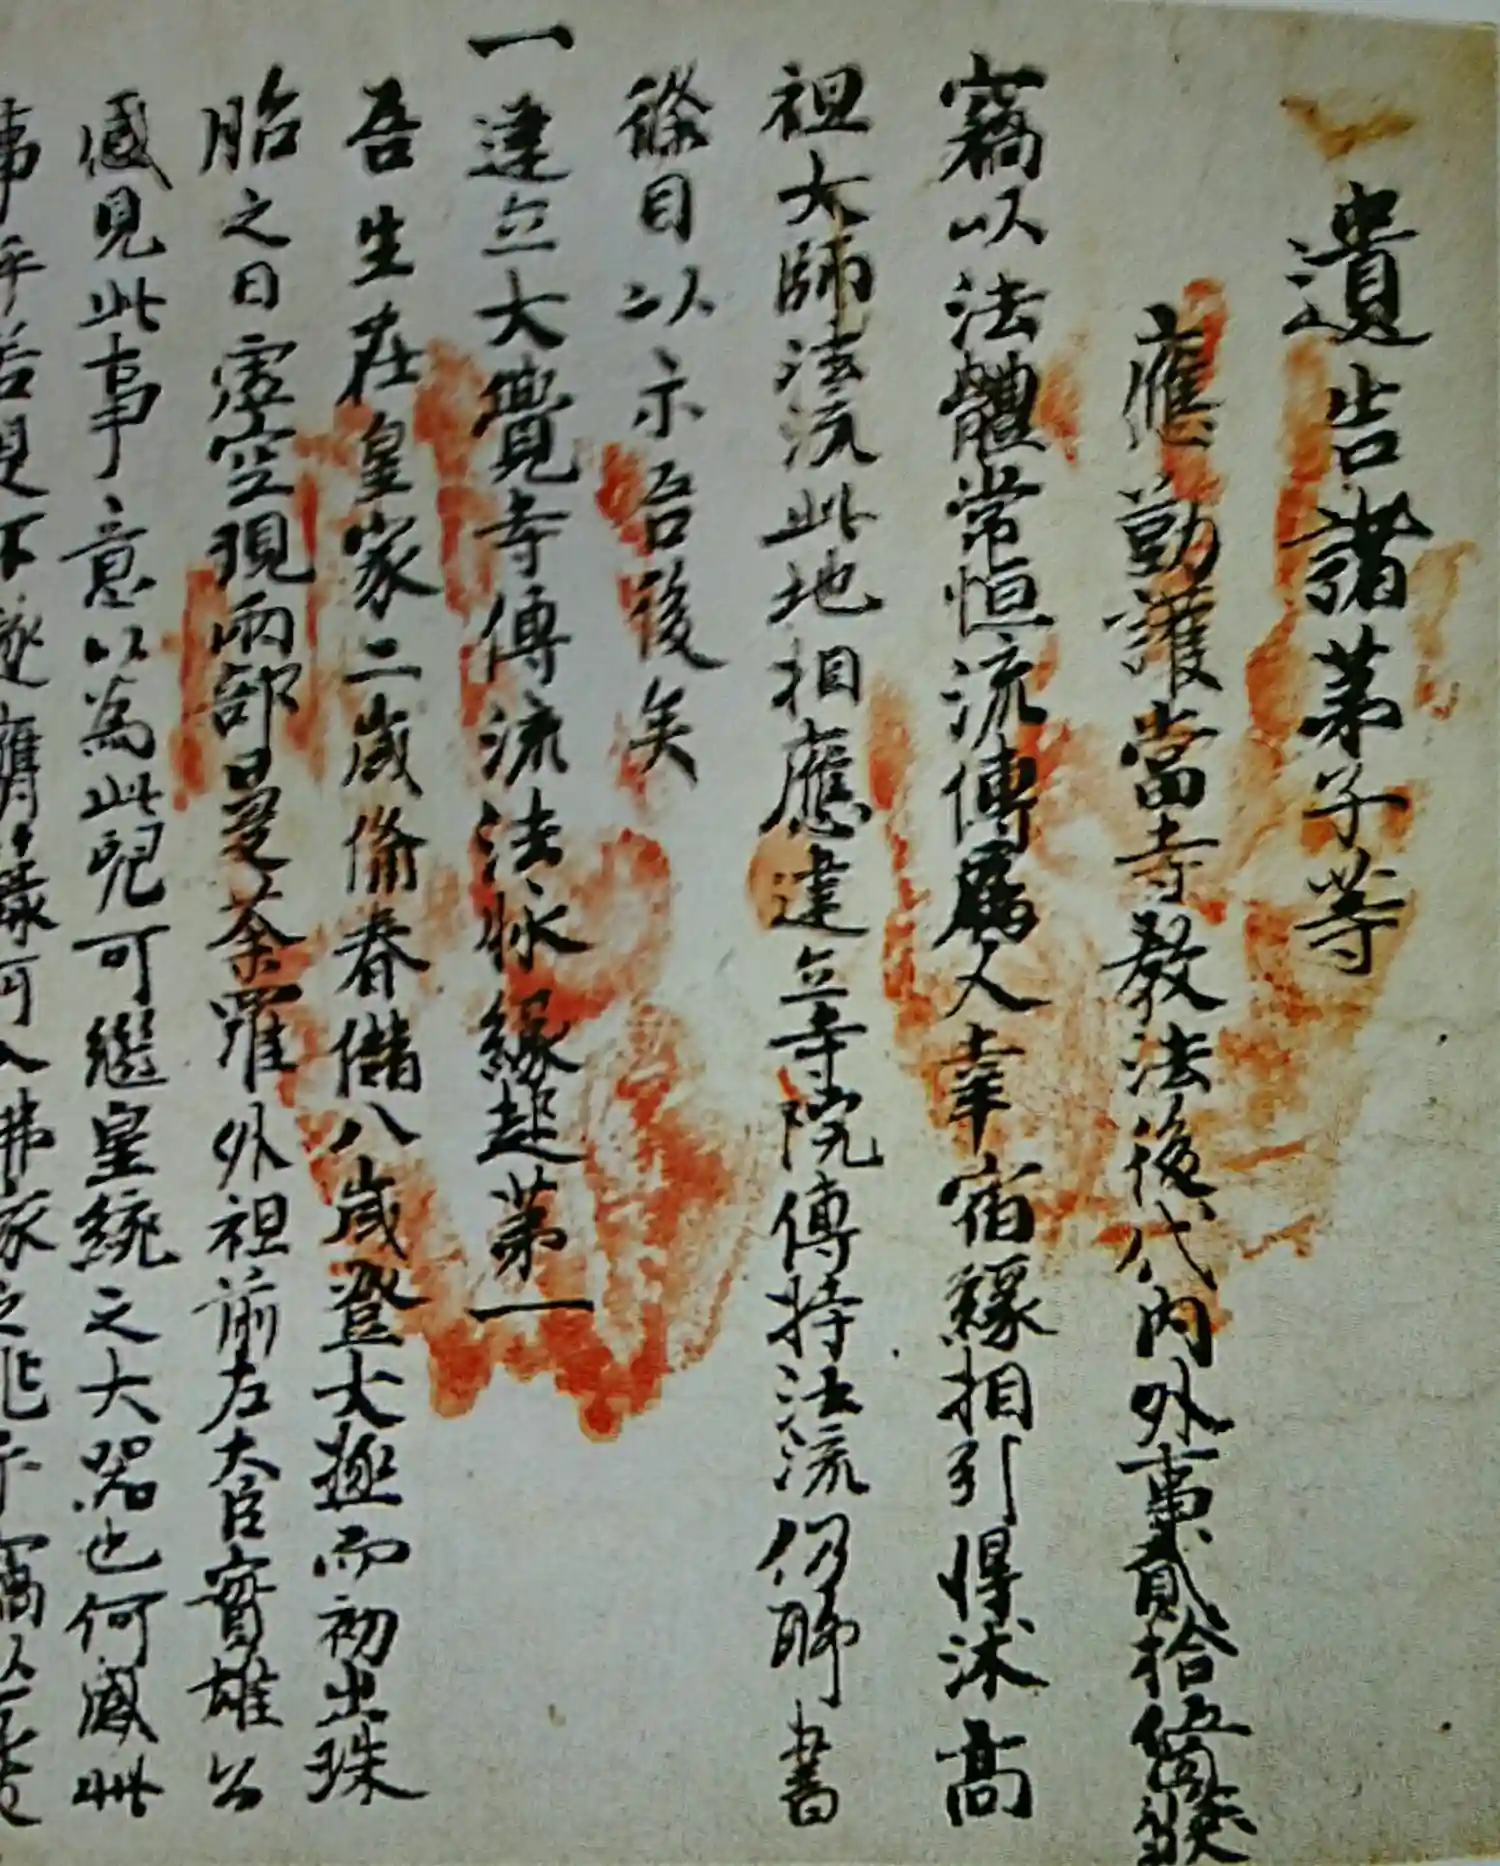 遺告諸弟子等
應勤護當寺教法後代内外事貳拾伍箇條
竊以法體常恒流傳属人幸宿縁相引得沐高
祖大師法流此地相應建立寺院傳持法流仍聊書
條目以示吾後矣
一建立大覺寺傳流法水縁起第一
吾生在皇家二歳備春儲八歳登大極而初出珠
胎之日虚空現兩部曼荼羅外祖前左大臣實雄公
感見此事意以為此兒可繼皇統之大器也何感此
事乎若